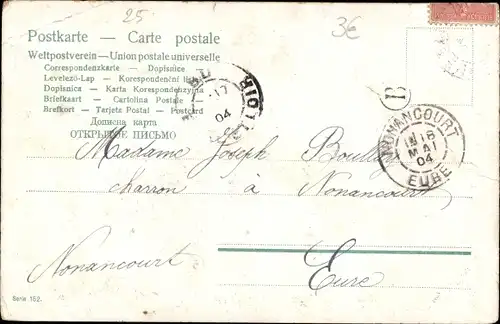 25
3€
Postkarte — Carte postale
Weltpostverein — Union postale universelle
Correspondenzkarte — Dopisnice
Levelező-Lap — Korespondenční
Dopisnica — Karta Korespondenzyjna
Briefkaart — Cartolina Postale
Brefkort — Tarjeta Postal — Postcard
Дописна карта
ОТКРЫТОЕ ПИСЬМО
17
04
B
NONANCOURT
18
MAI
04
EURE
Madame Joseph
charron à Nonancourt
Nonancourt Eure
Serie 152.